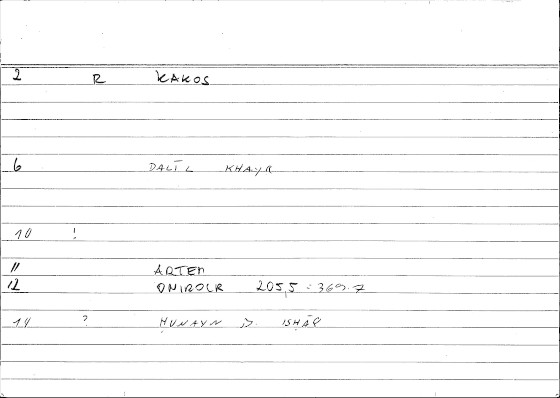 2 R KAKOS
6 DALĪL KHAYR
10 !
11 ARTEM
12 ONIROCR 205,5 = 369.7
14 ? ḤUNAYN b. ISḤĀQ